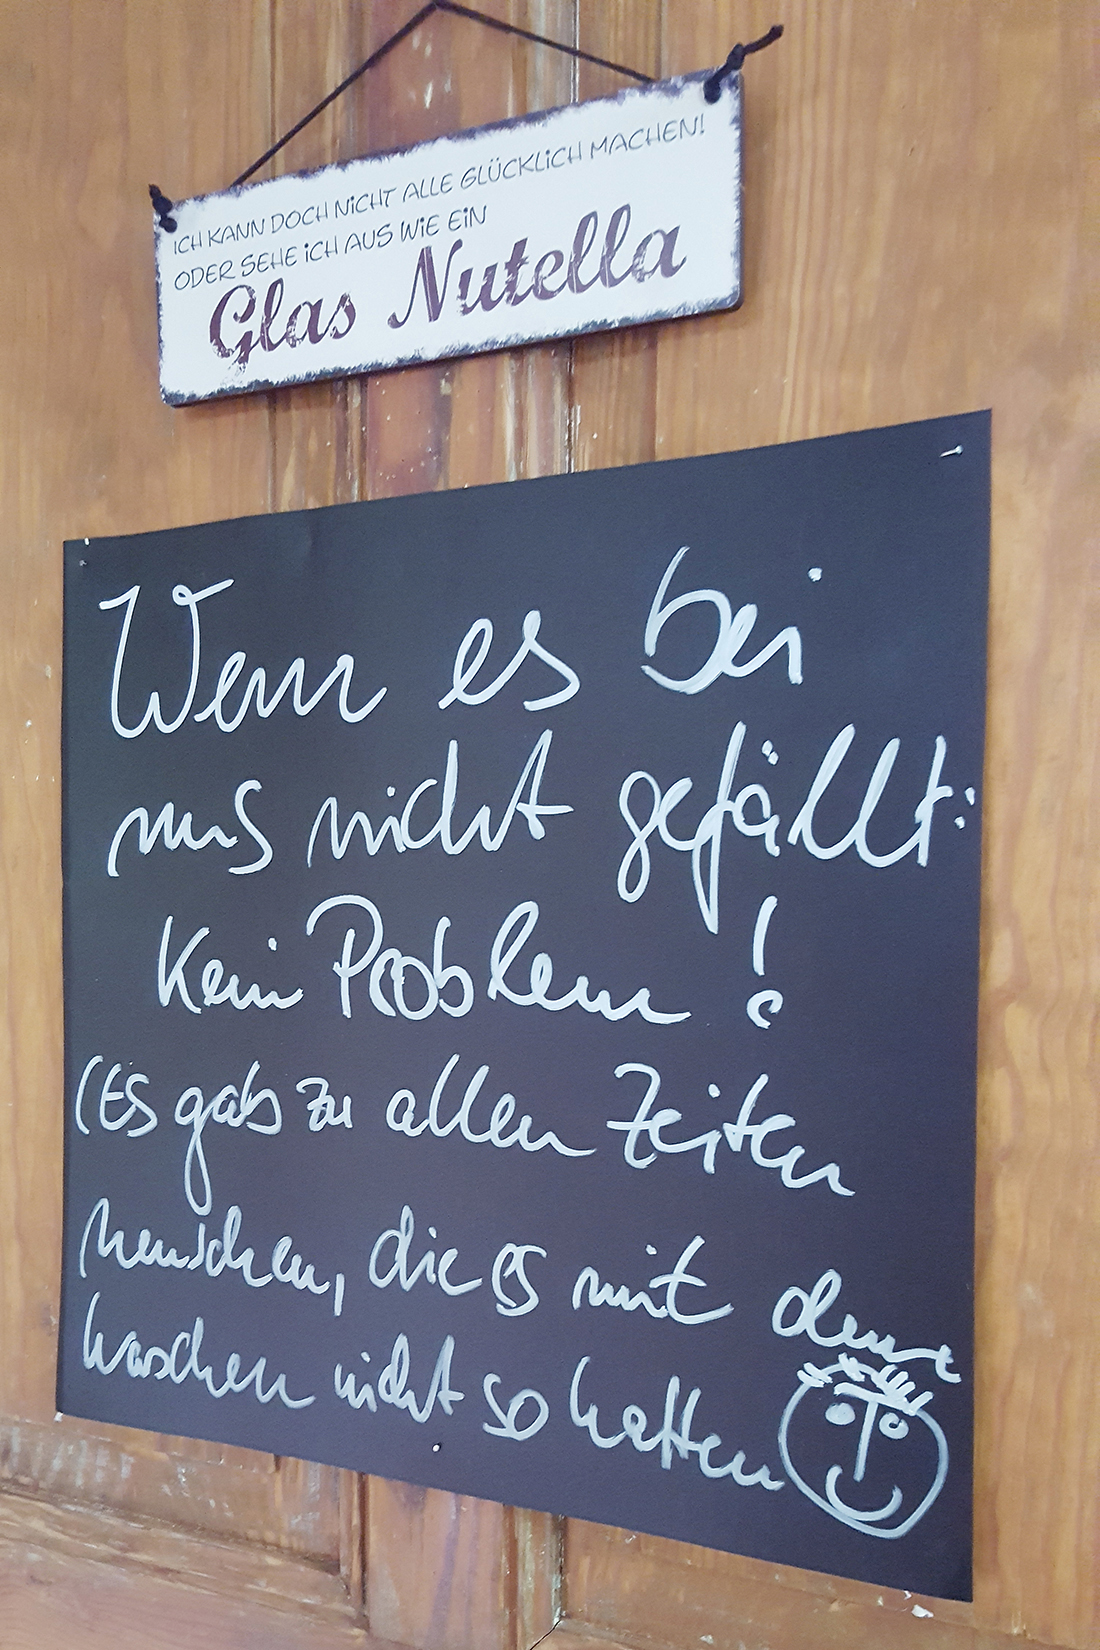 ICH KANN DOCH NICHT ALLE GLÜCKLICH MACHEN!
ODER SEHE ICH AUS WIE EIN
Glas Nutella
Wenn es bei
uns nicht gefällt:
Kein Problem!
(Es gab zu allen Zeiten
Menschen, die es mit dem
Waschen nicht so hatten